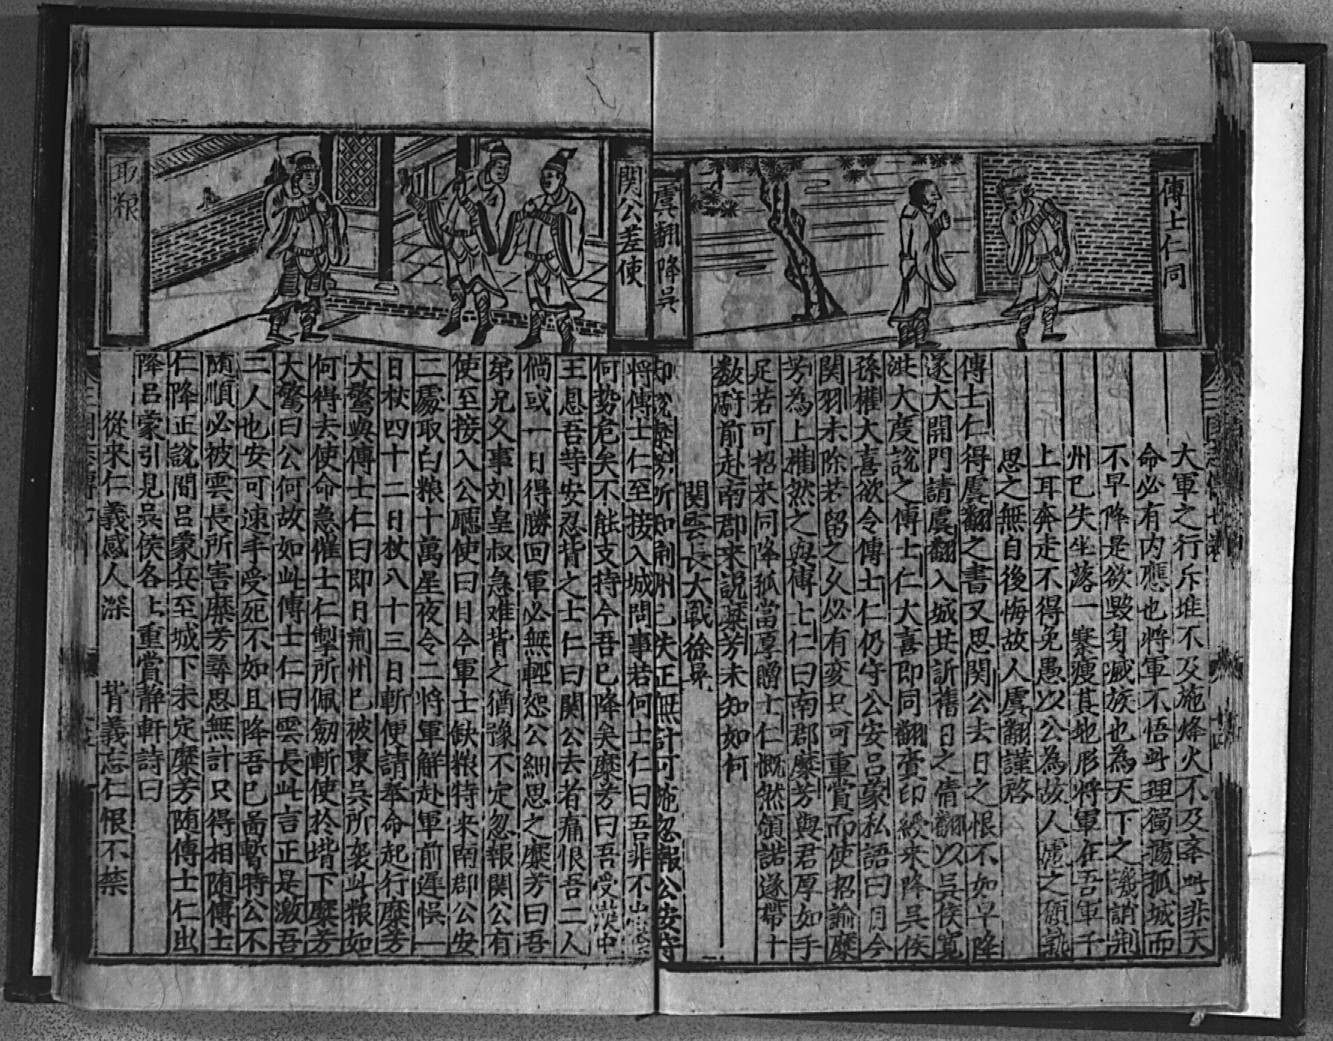 傅士仁同
虞翻降吳
大軍之行斥堠不及施烽火不及舉此非天
命必有內應也將軍不悟此理獨獨孤城而
不早降是欲毀身滅族也為天下之譏誚荊
州已失坐落一寨瘦其地形將軍在吾軍千
上耳奔走不得免愚以公為故人嘘之願熟
思之無自後悔故人虞翻謹啓
傅士仁得虞翻之書又思関公去日之恨不如早降
遂大開門請虞翻入城共訴舊日之情翻以吳侯寬
洪大度說之傅士仁大喜即同翻賫印綬来降吳侯
孫權大喜欲令傅士仁仍守公安呂蒙私語曰目今
関羽未除若留之久必有変只可重賞而使招諭糜
芳為上權然之與傅士仁曰南郡糜芳與君厚如手
足若可招来同降孤當厚贈士仁慨然領諾遂帶十
数騎前赴南郡来說糜芳未知如何
関雲長大戰徐晃
関公差使
取粮
却說糜芳所知荊州已失正無計可施忽報公安守
將傅士仁至接入城問事若何士仁曰吾非不忠
何勢危矣不能支持今吾已降矣糜芳曰吾受漢中
王恩吾等安忍背之士仁曰関公去者痛恨吾二人
倘或一日得勝回軍必無輕恕公細思之糜芳曰吾
弟兄久事刘皇叔急难背之猶豫不定忽報関公有
使至接入公廳使曰目今軍士缺粮特来南郡公安
二處取白粮十萬星夜令二將軍解赴軍前遲悞一
日杖四十二日杖八十三日斬便請奉命起行糜芳
大驚與傅士仁曰即日荊州已被東吳所襲此粮如
何得去使命急催士仁掣所佩劒斬使於堦下糜芳
大驚曰公何故如此傅士仁曰雲長此言正是激吾
二人也安可速手受死不如且降吾已啚暫時公不
随順必被雲長所害糜芳尋思無計只得相随傅士
仁降正說間呂蒙兵至城下未定糜芳随傅士仁出
降呂蒙引見吳侯各上重賞静軒詩曰
從来仁義感人深　背義忘仁恨不禁